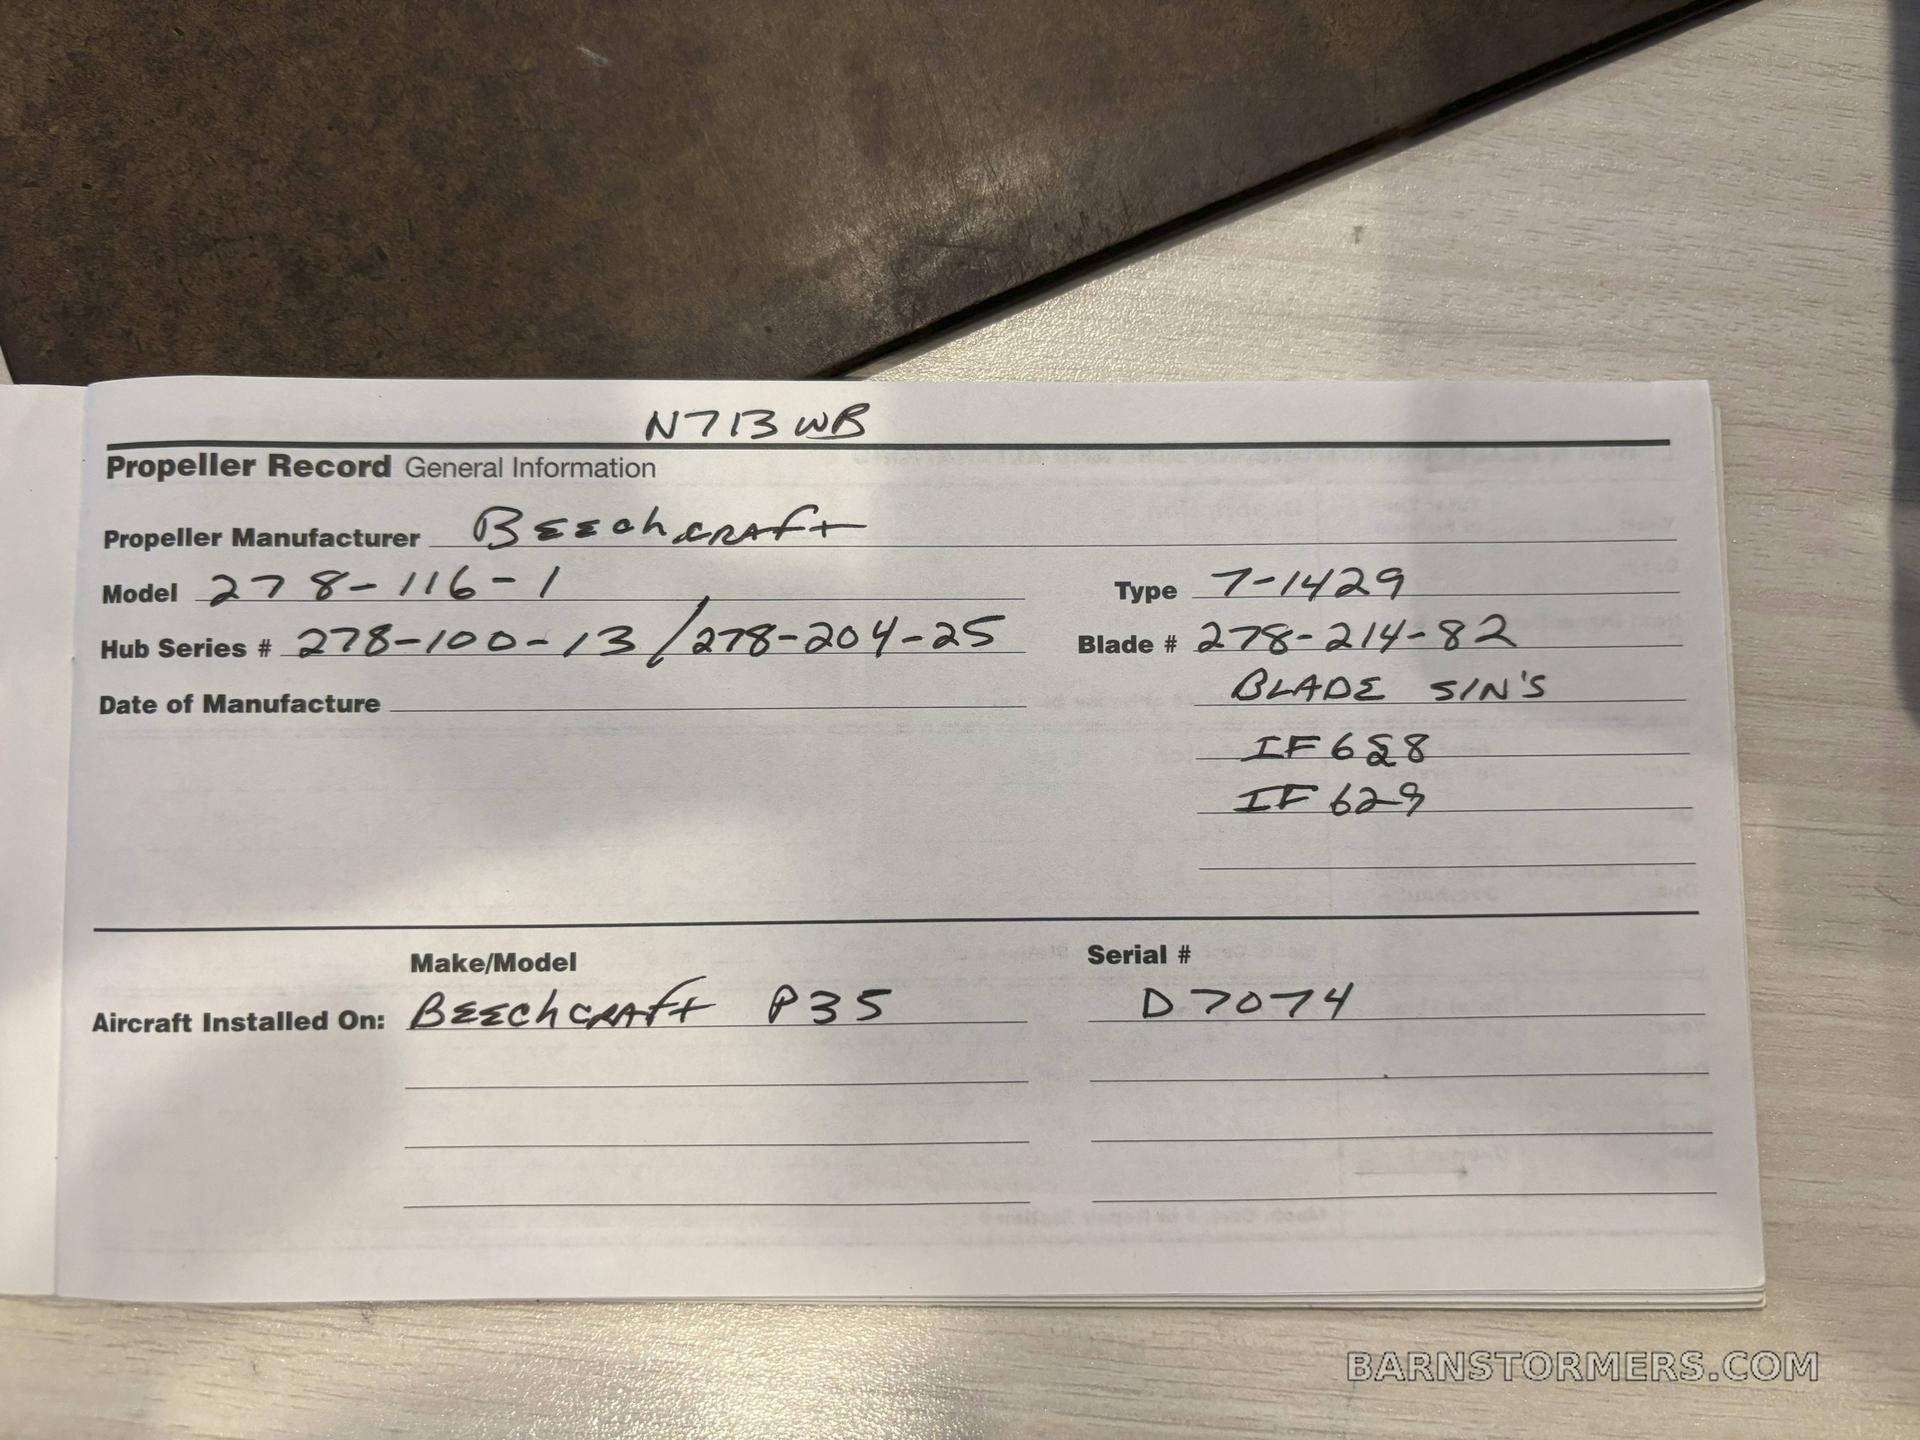 N713WB
Propeller Record General Information
Propeller Manufacturer BEECHCRAft
Model 278-116-1 Type 7-1429
Hub Series # 278-100-13 / 278-204-25 Blade # 278-214-82
Date of Manufacture BLADE S/N'S
IF 628
IF 629
Make/Model Serial #
Aircraft Installed On: BEECHCRAft P35 D7074
BARNSTORMERS.COM